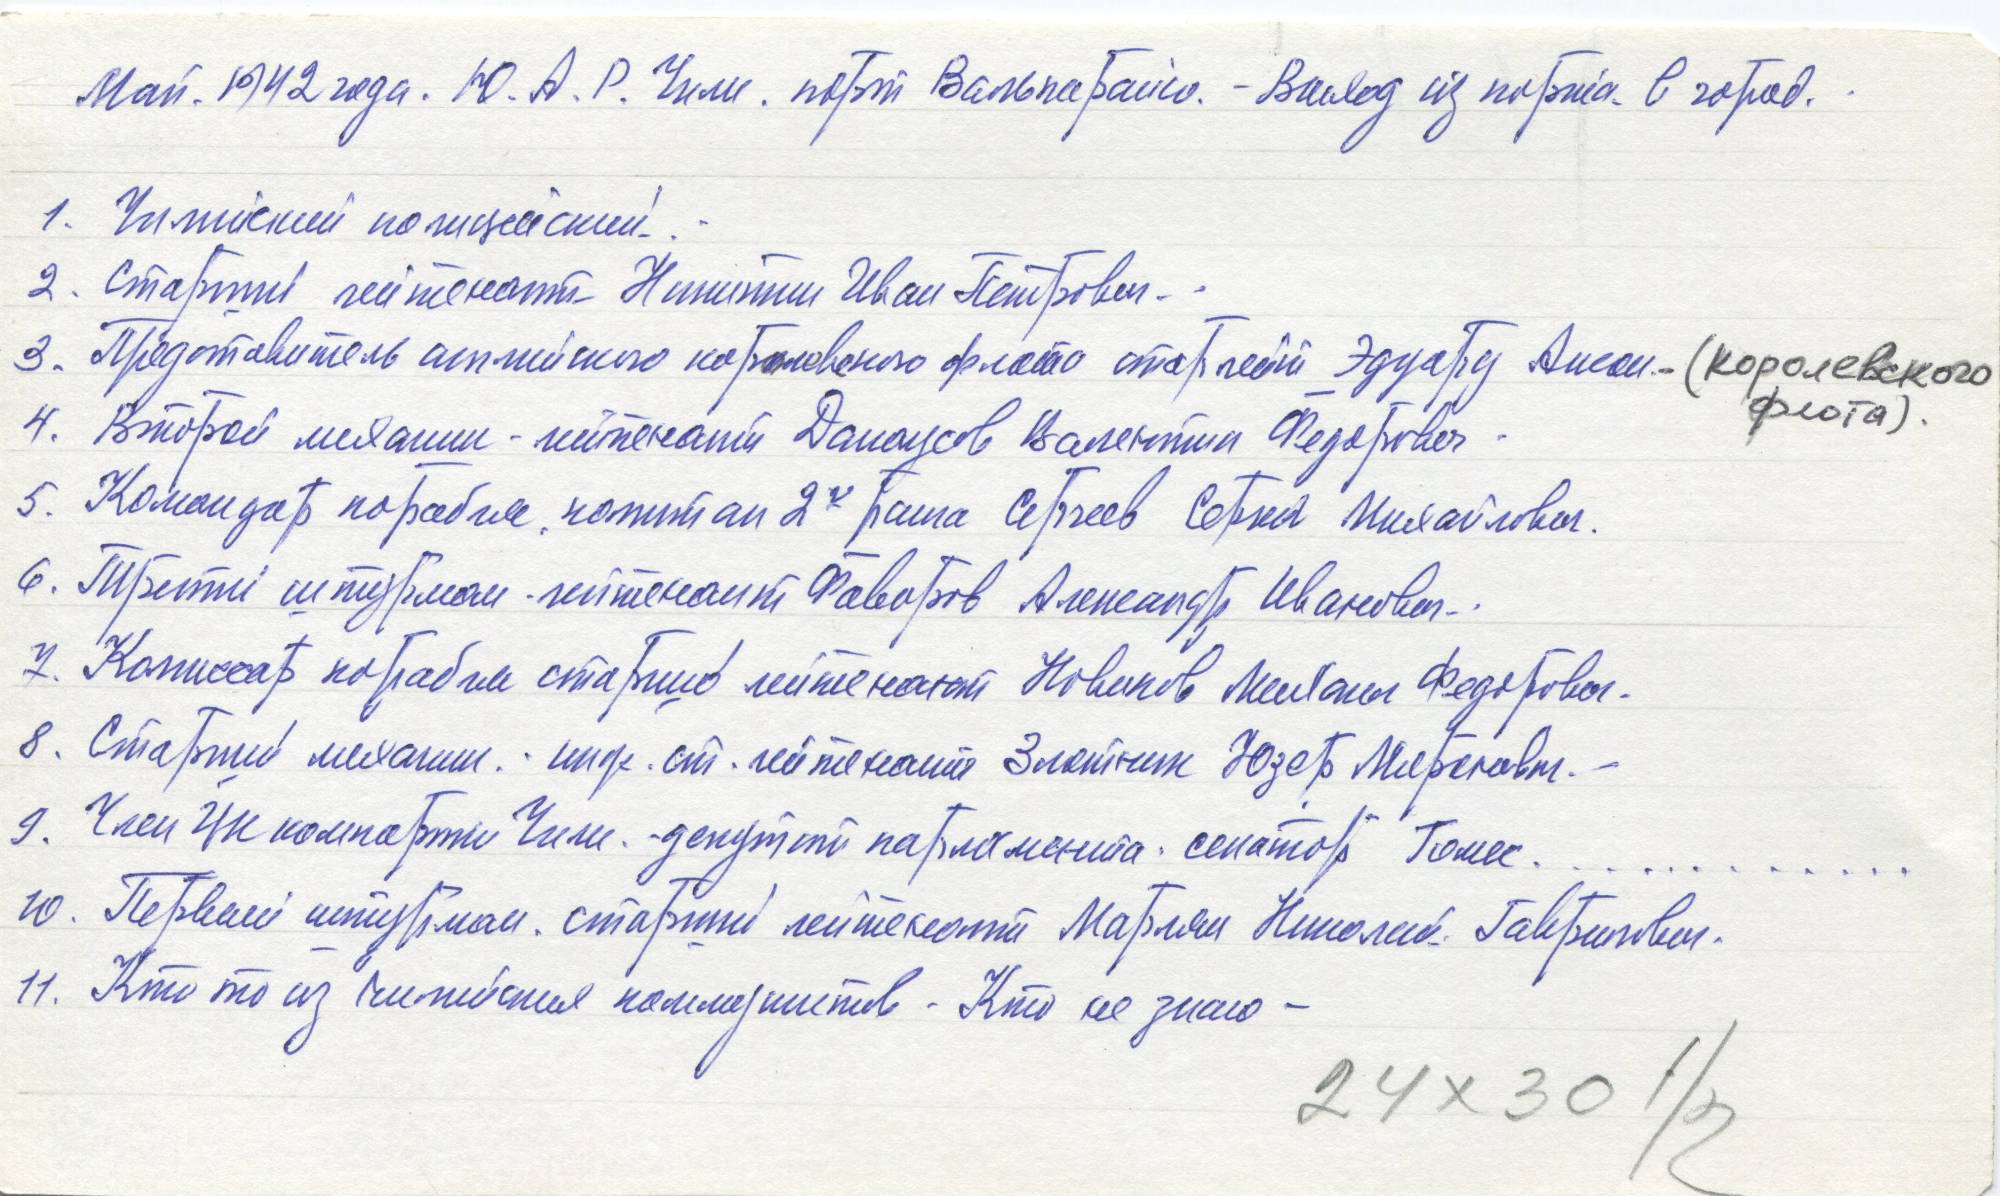 Май. 1942 года. Ю. А. Р. Чили. порт Вальпарайсо. – Выход из порта в город.
1. Чилийский полицейский.
2. Старший лейтенант Никитин Иван Петрович.
3. Представитель английского королевского флота старлейт Эдуард – (королевского
флота).
4. Второй механик – лейтенант Валентин Федорович
5. Командир корабля, капитан 2го ранга Сергеев Сергей Михайлович.
6. Третий штурман – лейтенант Фаворов Александр Иванович.
7. Комиссар корабля старший лейтенант Новиков Михаил Федорович.
8. Старший механик. инж. ст. лейтенант Злотник Юзер Миронович. –
9. Член ЦК компартии Чили. – депутат парламента. сенатор Гомес. . . . . . . . . . . . .
10. Первый штурман. старший лейтенант Марлян Николай Гаврилович.
11. Кто то из Чилийских коммунистов – Кто не знаю –
24 х 30 1/2